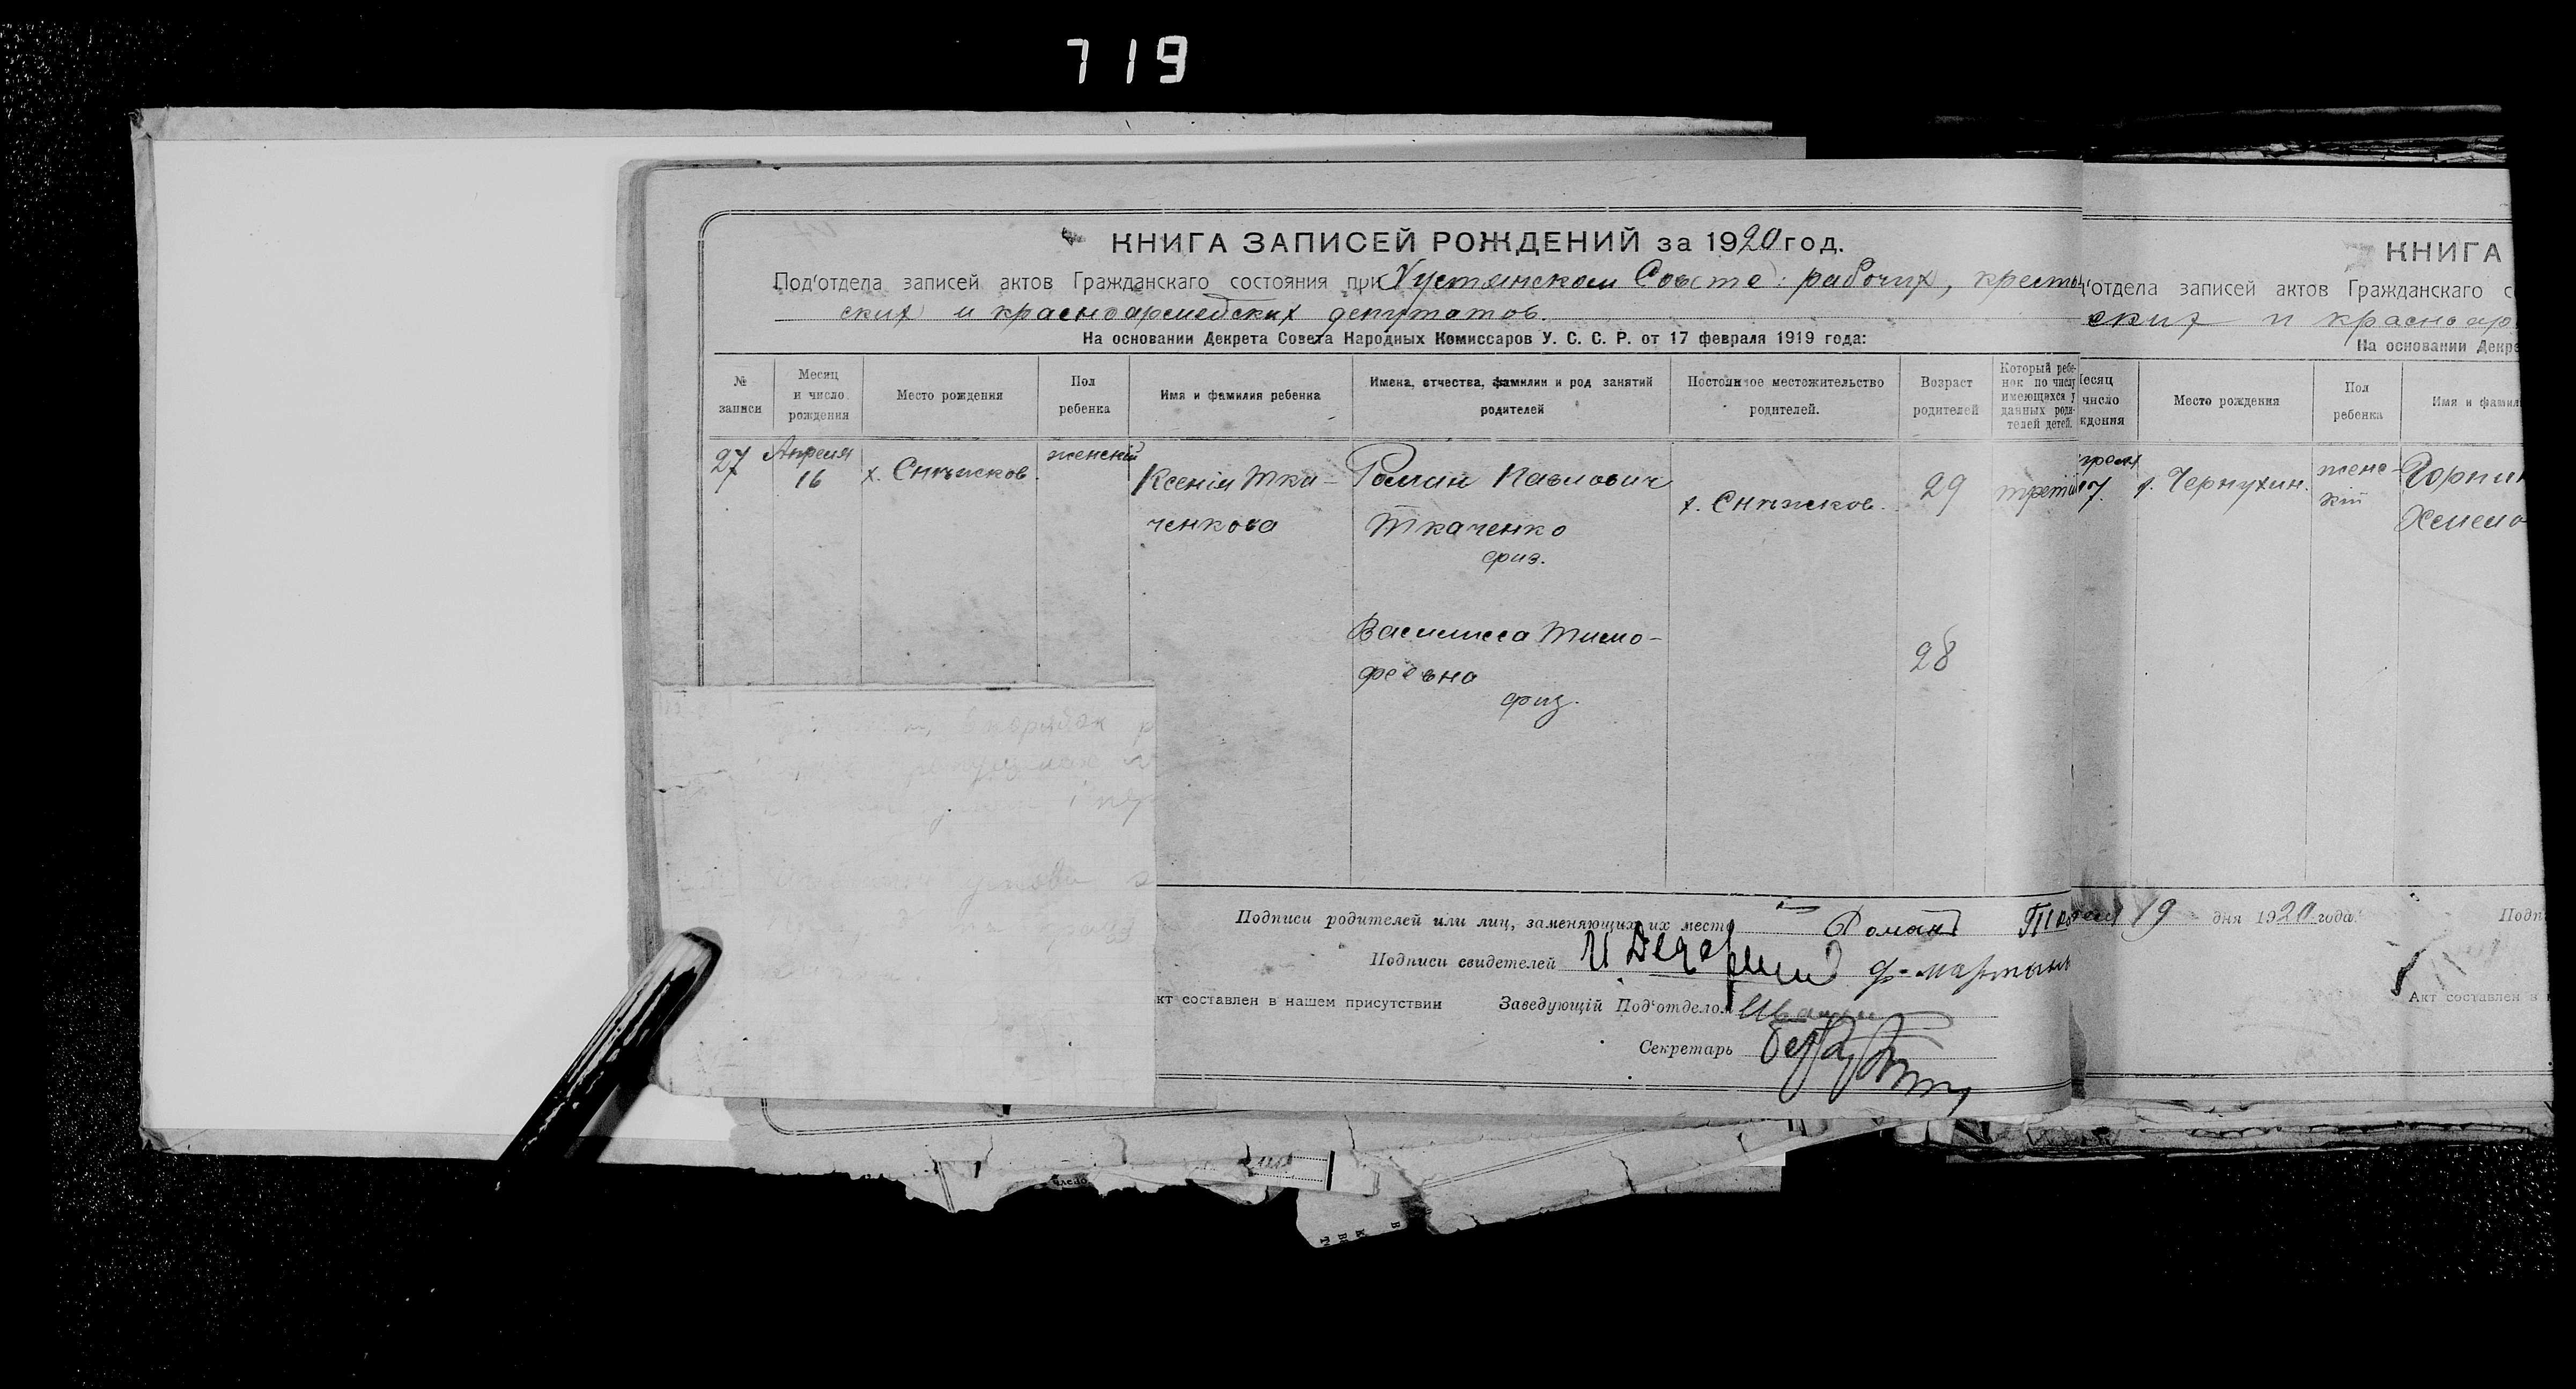 719
КНИГА ЗАПИСЕЙ РОЖДЕНИЙ за 1920 год.
Под'отдела записей актов Гражданскаго состояния при Хустянском Совѣте: рабочих, кресть
ских и красноармейских депутатов.
На основании Декрета Совета Народных Комиссаров У. С. С. Р. от 17 февраля 1919 года:
№ записи
Месяц и число рождения
Место рождения
Пол ребенка
Имя и фамилия ребенка
Имена, отчества, фамилии и род занятий родителей
Постоянное местожительство родителей.
Возраст родителей
Который ребе-
нок по числу
имеющихся у
данных роди-
телей детей.
27
Апреля
16
х. Снѣжков.
женскій
Ксенія Тка-
ченкова
Роман Павлович
Ткаченко
физ.
х. Снѣжков.
29
третій
Василиса Тимо-
феевна
физ.
28
Подписи родителей или лиц, заменяющих их место Роман
Подписи свидетелей
кт составлен в нашем присутствии Заведующій Под'отделом
Секретарь
КНИГА
'отдела записей актов Гражданскаго с
ских и красноар
На основании Декре
есяц
число
ждения
Место рождения
Пол ребенка
Имя и фамил
17.
х. Чернухин.
женс-
кій
Горпин
19 дня 1920 года.
Подп
Акт составлен в